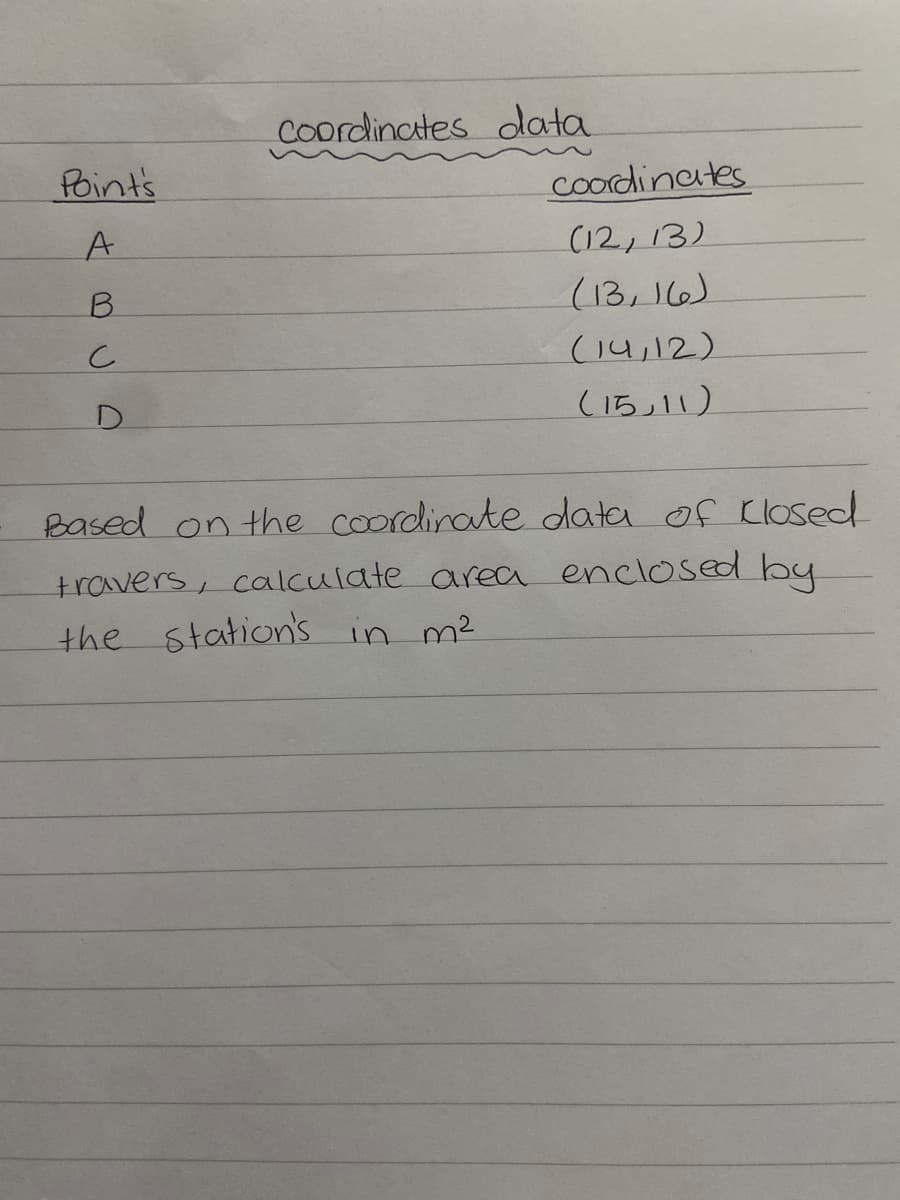 coordinates data
Point's coordinates
A (12, 13)
B (13, 16)
C (14,12)
D (15,11)
Based on the coordinate data of Closed
travers, calculate area enclosed by
the station's in m²